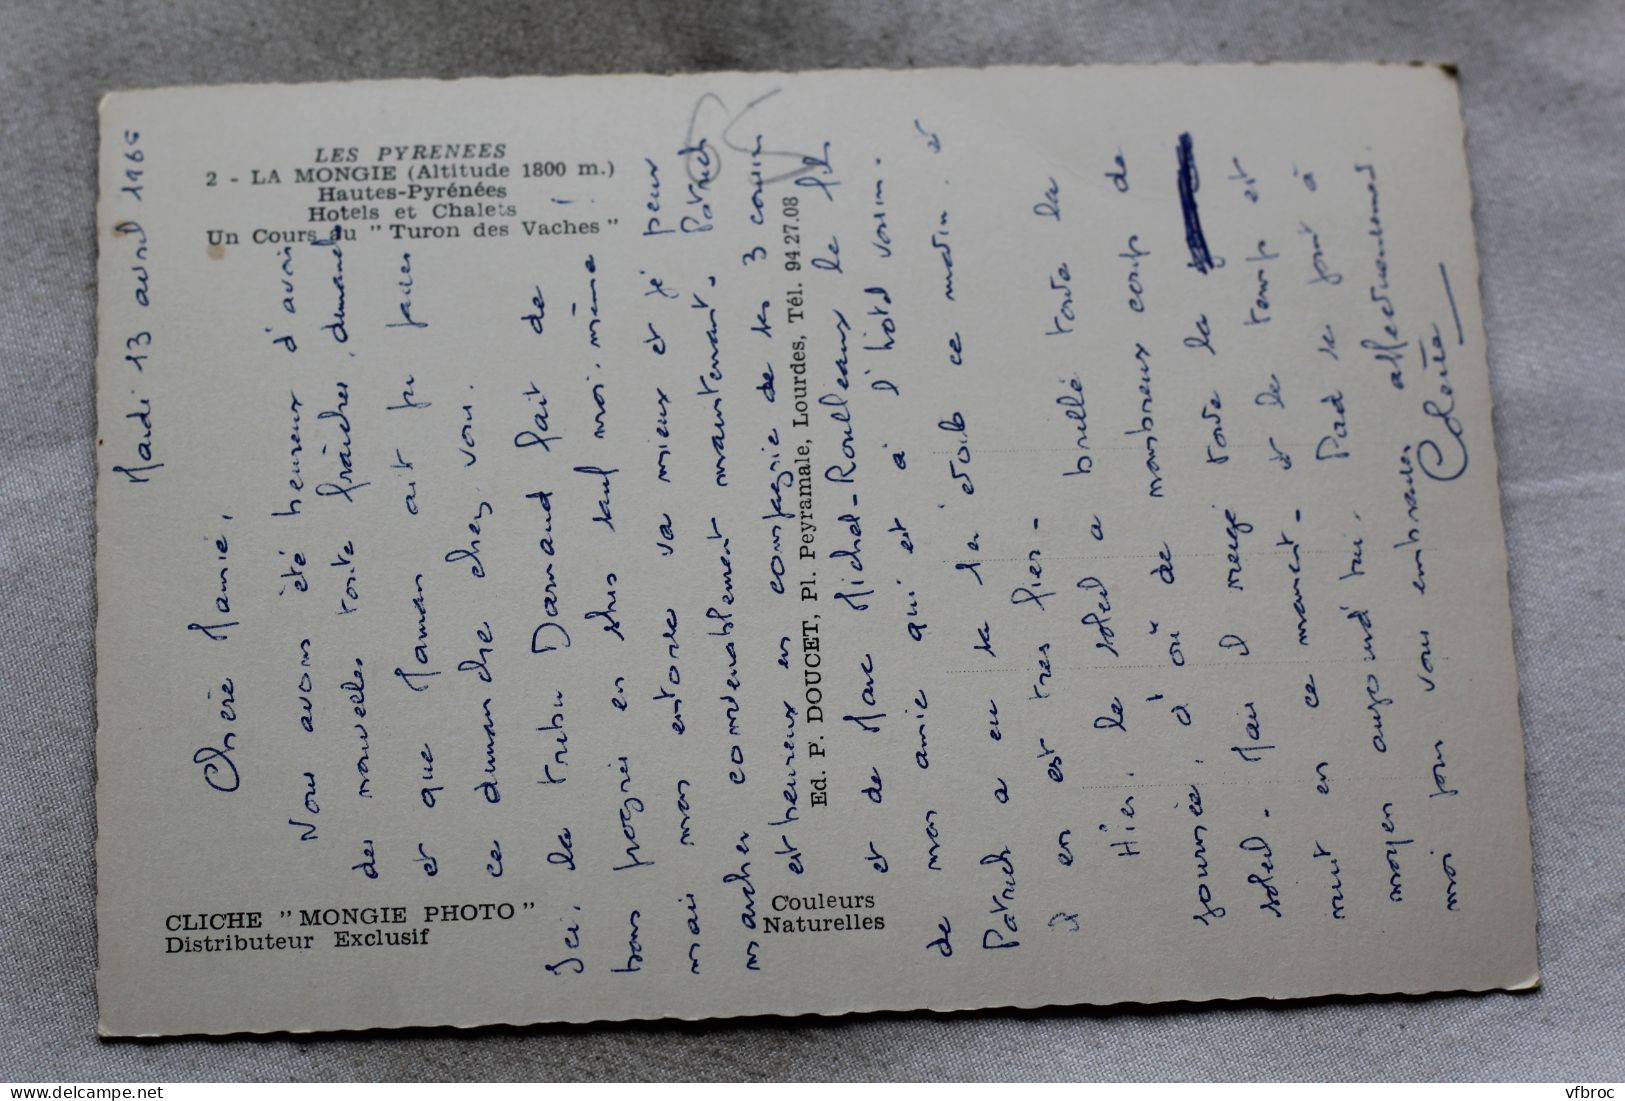 LES PYRENEES
2 - LA MONGIE (Altitude 1800 m.)
Hautes-Pyrénées
Hotels et Chalets
Un Cours au " Turon des Vaches "
CLICHE " MONGIE PHOTO "
Distributeur Exclusif
Couleurs
Naturelles
Ed. P. DOUCET, Pl. Peyramale, Lourdes, Tél. 94.27.08
Mardi 13 avril 1965
Chère Mamie,
Nous avons été heureux d'avoir
des nouvelles toute fraîches, dimanche
et que Maman ait pu passer
ce dimanche chez vous.
Ici, la tribu Darnaud fait de
bons progrès en skis sauf moi-même !
mais mon entorse va mieux et je peux
marcher convenablement maintenant. Patrick
est heureux en compagnie de ses 3 cousins
et de Marc Michel-Roulleaux le fils
de mon amie qui est à l'hôtel voisin.
Patrick a eu sa 1è étoile ce matin et
il en est très fier -
Hier, le soleil a brillé toute la
journée, d'où de nombreux coups de
soleil - Mais il neige toute la
nuit en ce moment - et le temps est
moyen aujourd'hui. Paul se joint à
moi pour vous embrasser affectueusement.
Colette
vfbroc